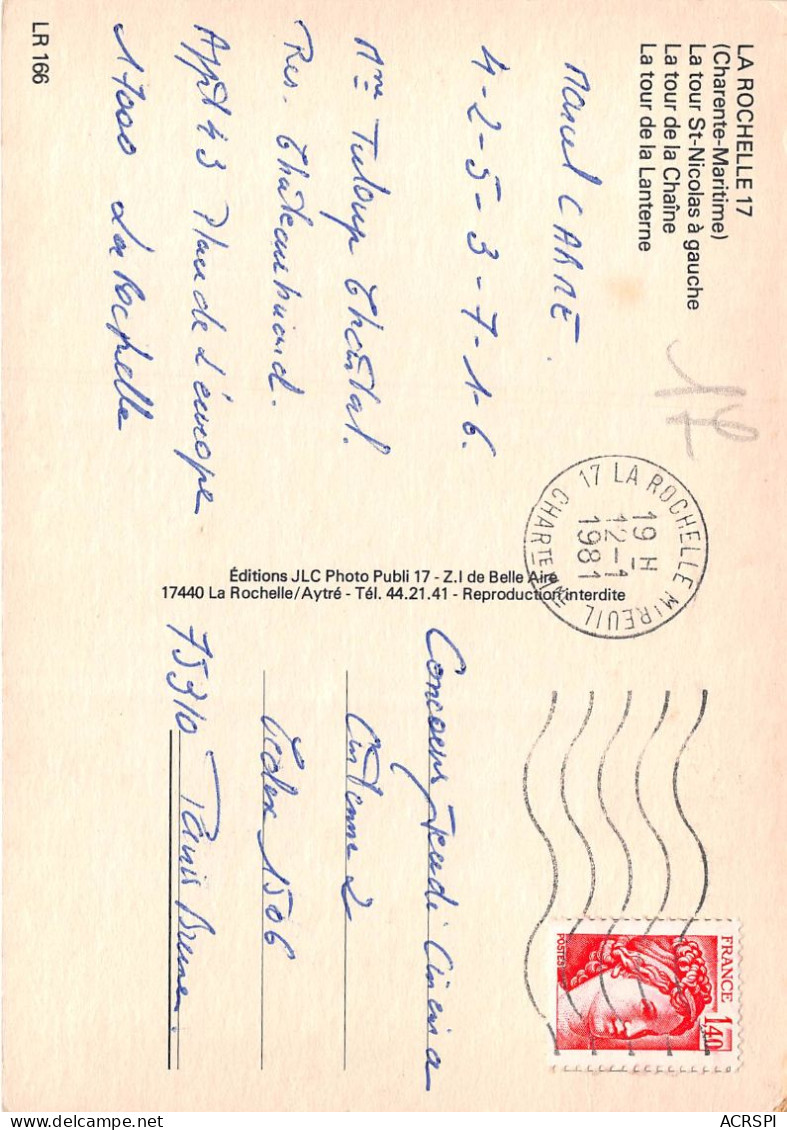 LA ROCHELLE 17
(Charente-Maritime)
La tour St-Nicolas à gauche
La tour de la Chaîne
La tour de la Lanterne
Marcel CARNE.
4-2-5-3-7-1-6.
Mme Tuloup Chantal.
Res. Chateaubriand.
Appt 43 Place de L'europe
17000 La Rochelle
LR 166
17
17 LA ROCHELLE MIREUIL
19 H
12-1
1981
CHARTE MME
Éditions JLC Photo Publi 17 - Z.I de Belle Aire
17440 La Rochelle/Aytré - Tél. 44.21.41 - Reproduction interdite
FRANCE
1,40
POSTES
Concours Jeudi Cinéma
Antenne 2
Cedex 1506
75310 Paris Brune.
ACRSPI